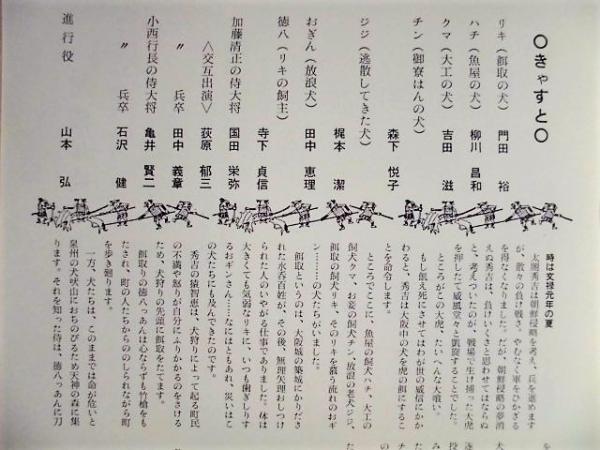 ○きゃすと○
リキ(餌取の犬) 門田 裕
ハチ(魚屋の犬) 柳川 昌和
クマ(大工の犬) 吉田 滋
チン(御寮はんの犬)
森下 悦子
ジジ(逃散してきた犬)
梶本 潔
おぎん(放浪犬) 田中 恵理
徳八(リキの飼主) 寺下 貞信
加藤清正の侍大将 国田 栄弥
〈交互出演〉 荻原 郁三
〃 兵卒 田中 義章
小西行長の侍大将 亀井 賢二
〃 兵卒 石沢 健
進行役 山本 弘
時は文禄元年の夏
太閤秀吉は朝鮮侵略を考え、兵を進めます
が、散々の負け戦さ。やむなく軍をひかざる
を得なくなりました。だが、朝鮮侵略の夢消
えぬ秀吉は、負けいくさと思わせてはならぬ
と、考えついたのが、戦場で生け捕った大虎
を押したて威風堂々と凱旋することでした。
ところがこの大虎、たいへんな大喰い。
もし餓え死にさせてはわが世の威信にかか
わると、秀吉は大阪中の犬を虎の餌にするこ
とを命令します。
ところでここに、魚屋の飼犬ハチ、大工の
飼犬クマ、お妾の飼犬チン、放浪の老犬ジジ、
餌取の飼犬リキ、そのリキを慕う流れのおギ
ン………の犬たちがいました。
餌取というのは、大阪城の築城にかりださ
れた水呑百姓が、その後、無理矢理おしつけ
られた人のいやがる仕事でありました。体は
大きくても気弱なリキに、いつも歯ぎしりす
るおギンさん……なにはともあれ、災いはこ
の犬たちにも及んできたのです。
秀吉の猿智恵は、犬狩りによって起る町民
の不満や怒りが自分にふりかかるのをさける
ため、犬狩りの先頭に餌取をたてます。
餌取りの徳八っあんは心ならずも竹槍をも
たされ、町の人たちからののしられながら町
を歩き廻ります。
一方、犬たちは、このままでは命が危いと
泉州の犬吠山におちのびるため天神の森に集
ります。それを知った侍は、徳八っあんに刀